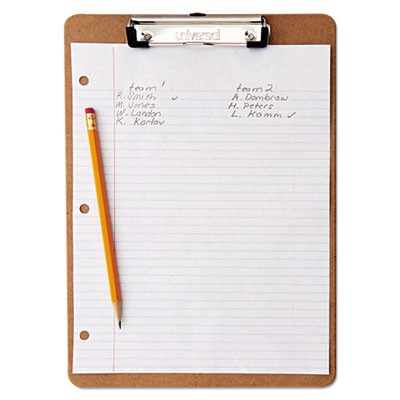 universal
team 1
R. Smith ✓
M. Jones
W. Landon
K. Karlov
team 2
A. Dombrow
H. Peters
L. Kamm ✓